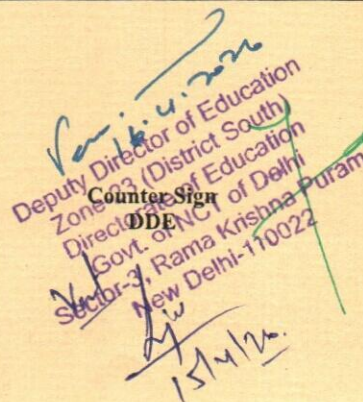 16.4.2026
Deputy Director of Education
Zone-23 (District South)
Directorate of Education
Govt. of NCT of Delhi
Sector-3, Rama Krishna Puram
New Delhi-110022
Counter Sign
DDE
15/4/26.